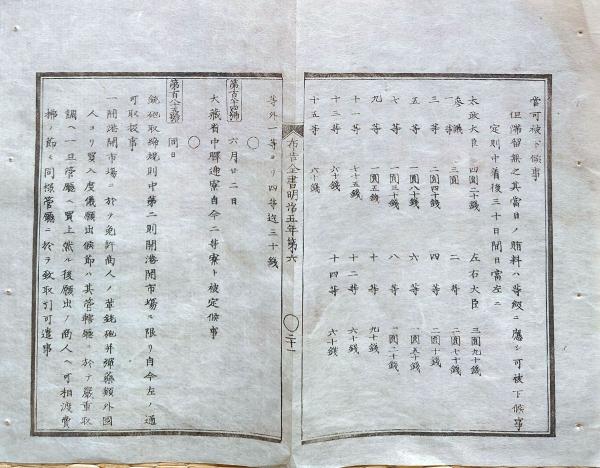 當可被下候事
但滯留無之其當日ノ賄料ハ等級ニ應シ可被下候事
定則中着後三十日間日當左ニ
太政大臣 四圓二十錢 左右大臣 三圓九十錢
參議 三圓 二等 二圓七十錢
三等 二圓四十錢 四等 二圓十錢
五等 一圓八十錢 六等 一圓五十錢
七等 一圓三十錢 八等 一圓二十錢
九等 一圓五錢 十等 九十錢
十一等 七十五錢 十二等 六十錢
十三等 六十錢 十四等 六十錢
十五等 六十錢
布告全書明治五年第六 二十一
等外一等ヨリ四等迄三十錢
第百八十四號 六月廿二日
大藏省中驛遞寮自今二等寮ト被定候事
第百八十五號 同日
銃砲取締規則中第二則開港開市場ニ限リ自今左ノ通
可取扱事
一開港開市場ニ於テ免許商人ノ輩銃砲并彈藥類外國
人ヨリ買入度儀願出候節ハ其管轄廳ニ於テ嚴重取
調ヘ一旦管廳ヘ買上然ル後願出ノ商人ヘ可相渡賣
拂ノ節モ同樣管廳ニ於テ致取引可遣事